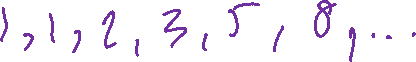 1, 1, 2, 3, 5, 8, ...